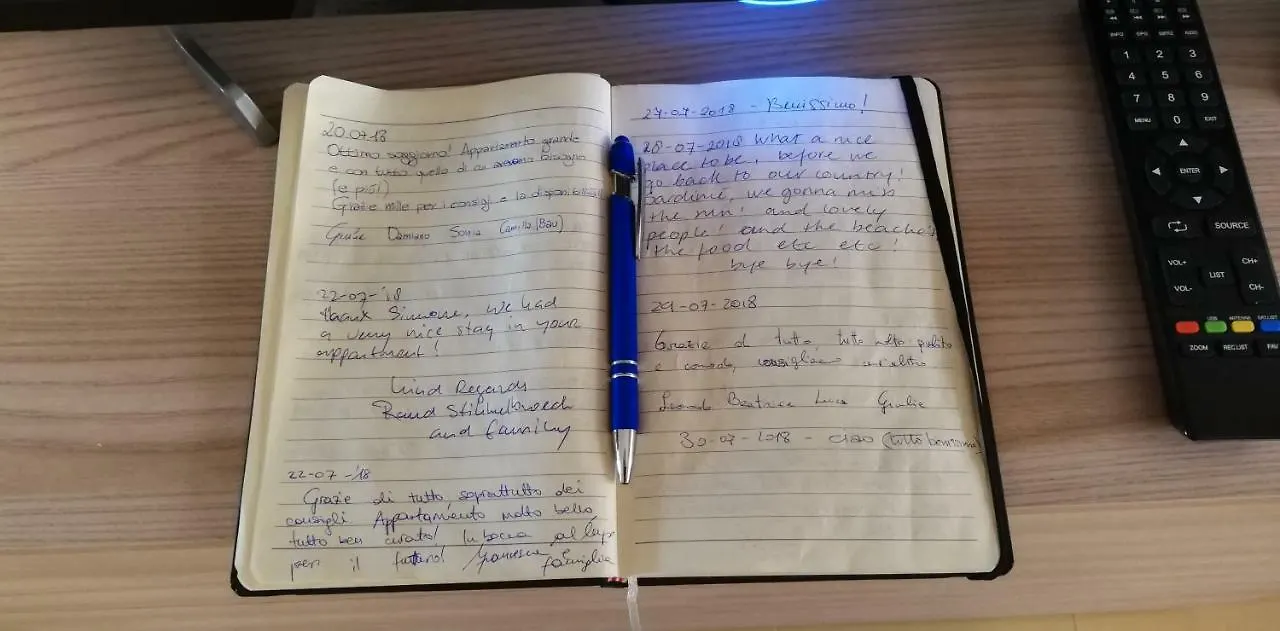 20.07.18
Ottimo soggiorno! Appartamento grande
e con tutto quello di cui avevamo bisogno
(e più!)
Grazie mille per i consigli e la disponibilità!
Grazie Damiano Sonia (Camilla/Bau)
22-07-'18
Thank Simone, we had
a very nice stay in your
appartment!
Kind Regards
and family
22-07-'18
Grazie di tutto, soprattutto dei
consigli Appartamento molto bello,
tutto ben curato! In bocca al lupo
per il futuro! Francesca famiglia
27-07-2018 - Benissimo!
28-07-2018 What a nice
place to be, before we
go back to our country!
Sardinië, we gonna miss
the sun! and lovely
people! and the beaches
the food etc etc!
bye bye!
29-07-2018
Grazie di tutto, tutto molto pulito
e comodo,
Beatrice Luca Giulia
30-07-2018 - ciao (tutto benissimo)
INFO EPG SUBTITLE AUDIO
1 2 3
4 5 6
7 8 9
MENU 0 EXIT
ENTER
SOURCE
VOL+ CH+
LIST
VOL- CH-
USB ANTENNA SAT.LIST
ZOOM REC LIST FAV